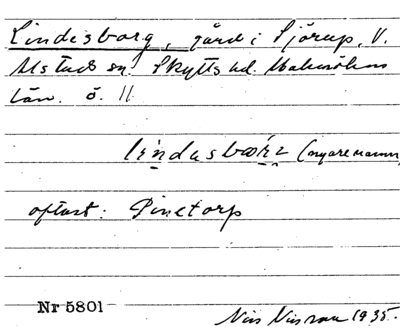 Lindesborg, gård i Sjörup, V.
Alstads sn. Skytts hd. Malmöhus
län. ö. 11
lindasbårz (nyare namn)
oftast: Pinetorp
Nr 5801
Nils Nilsson 1935.